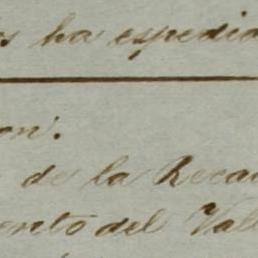 os ha espedid
on.
de la Reca
ento del Vall